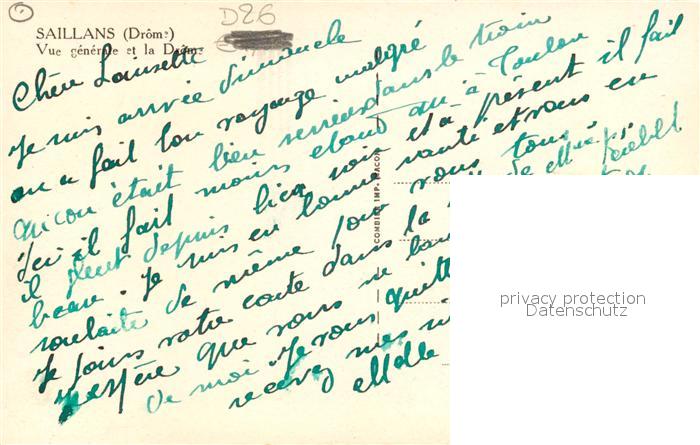 D26
SAILLANS (Drôme)
Vue générale et la Drôme
Chère
Je suis arrivée dimanche
on a fait bon voyage malgré
qu'on était bien serrées dans le train
Ici il fait moins chaud qu'à Toulon
il pleut depuis hier soir et à présent il fait
beau. Je suis en bonne santé et vous en
souhaite de même pour vous tous.
Je joins votre carte dans la de
J'espère que vous ne
de moi. Je vous quitte
recevez mes
COMBIER IMP. MACON
privacy protection
Datenschutz